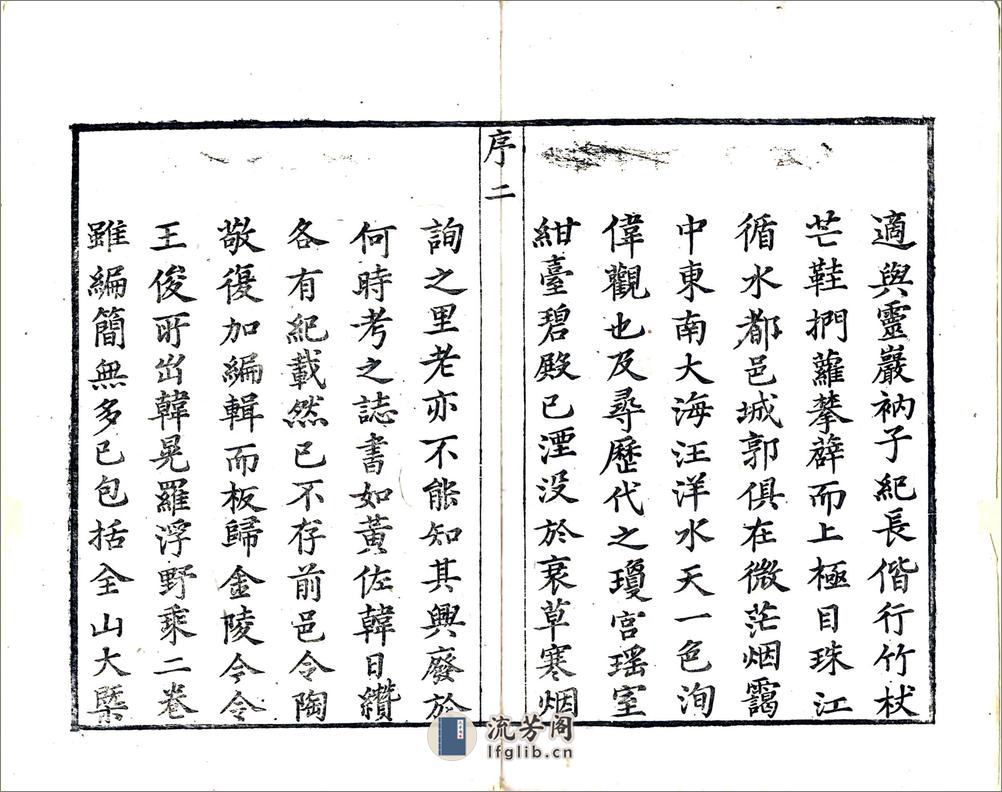 適與靈巖衲子紀長偕行竹杖
芒鞋捫蘿攀薜而上極目珠江
循水都邑城郭俱在微茫烟靄
中東南大海汪洋水天一色洵
偉觀也及尋歷代之瓊宮瑶室
紺臺碧殿已湮没於衰草寒烟
序 二
詢之里老亦不能知其興廢於
何時考之誌書如黃佐韓日纘
各有紀載然已不存前邑令陶
敬復加編輯而板歸金陵今令
王俊所出韓晃羅浮野乘二卷
雖編簡無多已包括全山大槩
流芳阁
lfglib.cn